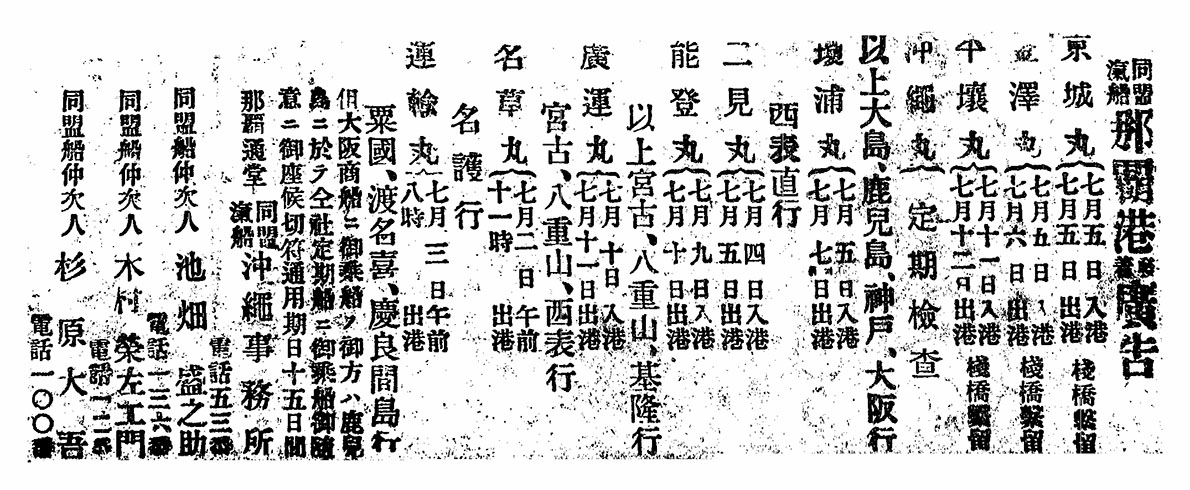 同盟汽船 那覇港發着廣告
京城丸 七月五日入港 七月五日出港 棧橋繋留
金澤丸 七月五日入港 七月六日出港 棧橋繋留
平壤丸 七月十一日入港 七月十二日出港 棧橋繋留
沖繩丸 定期檢査
以上大島、鹿兒島、神戸、大阪行
壞浦丸 七月五日入港 七月七日出港
西表直行
二見丸 七月四日入港 七月五日出港
能登丸 七月九日入港 七月十日出港
以上宮古、八重山、基隆行
廣運丸 七月十日入港 七月十一日出港
宮古、八重山、西表行
名草丸 七月二日午前十一時出港
名護行
運輸丸 七月三日午前八時出港
粟國、渡名喜、慶良間島行
但大阪商船ニ御乘船ノ御方ハ鹿兒
島ニ於テ仝社定期船ニ御乘船御隨
意ニ御座候切符通用期日十五日間
那覇通堂 同盟滊船 沖繩事務所 電話五三番
同盟船仲次人 池畑盛之助 電話一三六番
同盟船仲次人 木村榮左工門 電話一二番
同盟船仲次人 杉原大吾 電話一〇〇番